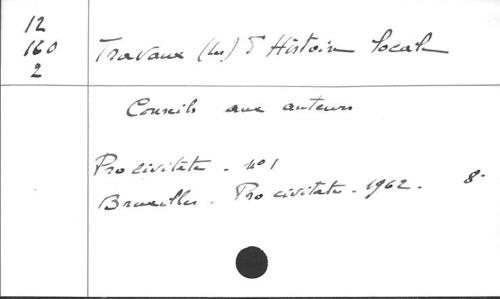 12
160
2
Travaux (les) d'Histoire locale
Conseils aux auteurs
Pro civitate. n° 1
Bruxelles. Pro civitate. 1962. 8°